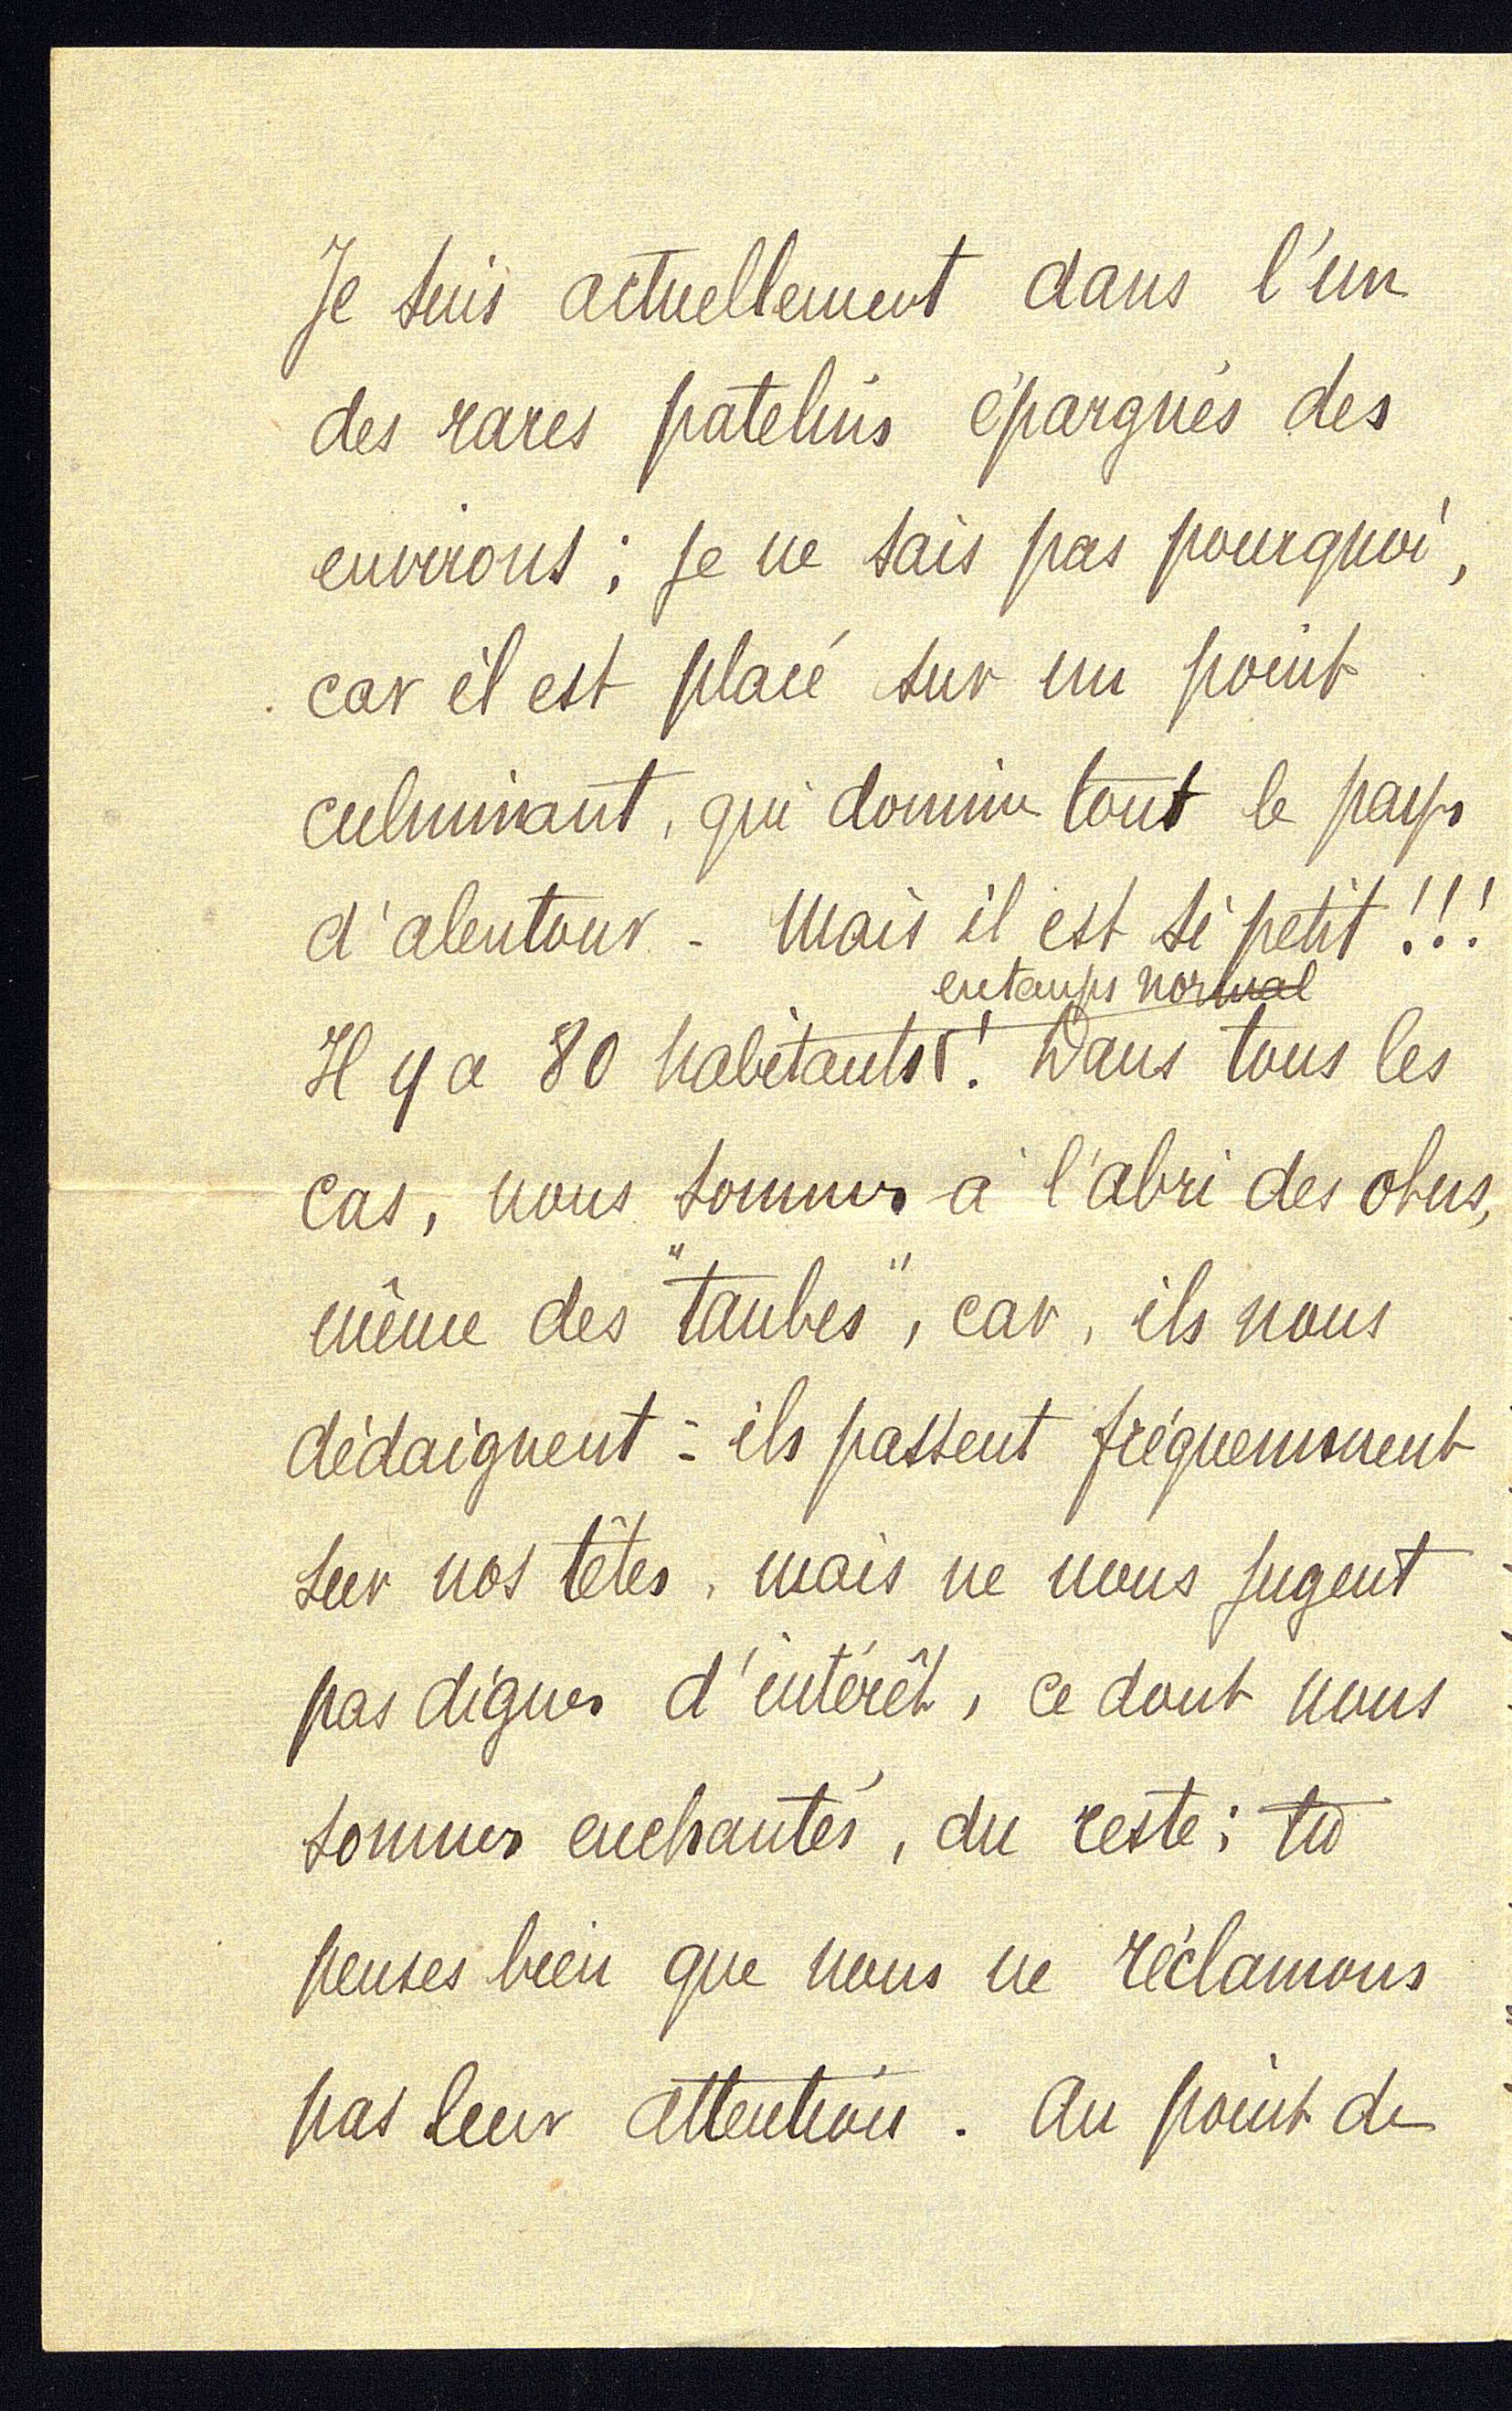 Je suis actuellement dans l'un
des rares patelins épargnés des
environs ; je ne sais pas pourquoi,
car il est placé sur un point
culminant, qui domine tout le pays
d'alentour - Mais il est si petit !!!
en temps normal
Il y a 80 habitants ! Dans tous les
cas, nous sommes à l'abri des obus,
même des "taubes", car, ils nous
dédaignent - ils passent fréquemment
sur nos têtes, mais ne nous jugent
pas dignes d'intérêt, ce dont nous
sommes enchantés, du reste ; tu
penses bien que nous ne réclamons
pas leur attention. Au point de